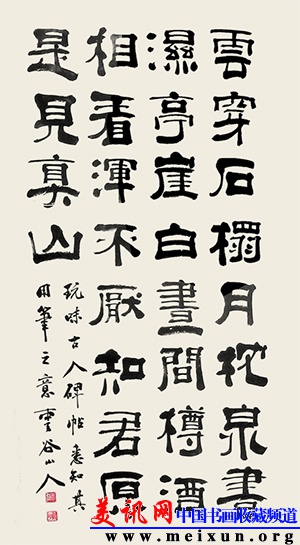 雲穿石榻月枕泉書
濕亭崖白晝間樽酒
相看渾不厭知君原
是見真山
玩味古人碑帖悉知其
用筆之意谷山人
美讯网 中国书画收藏频道
www.meixun.org